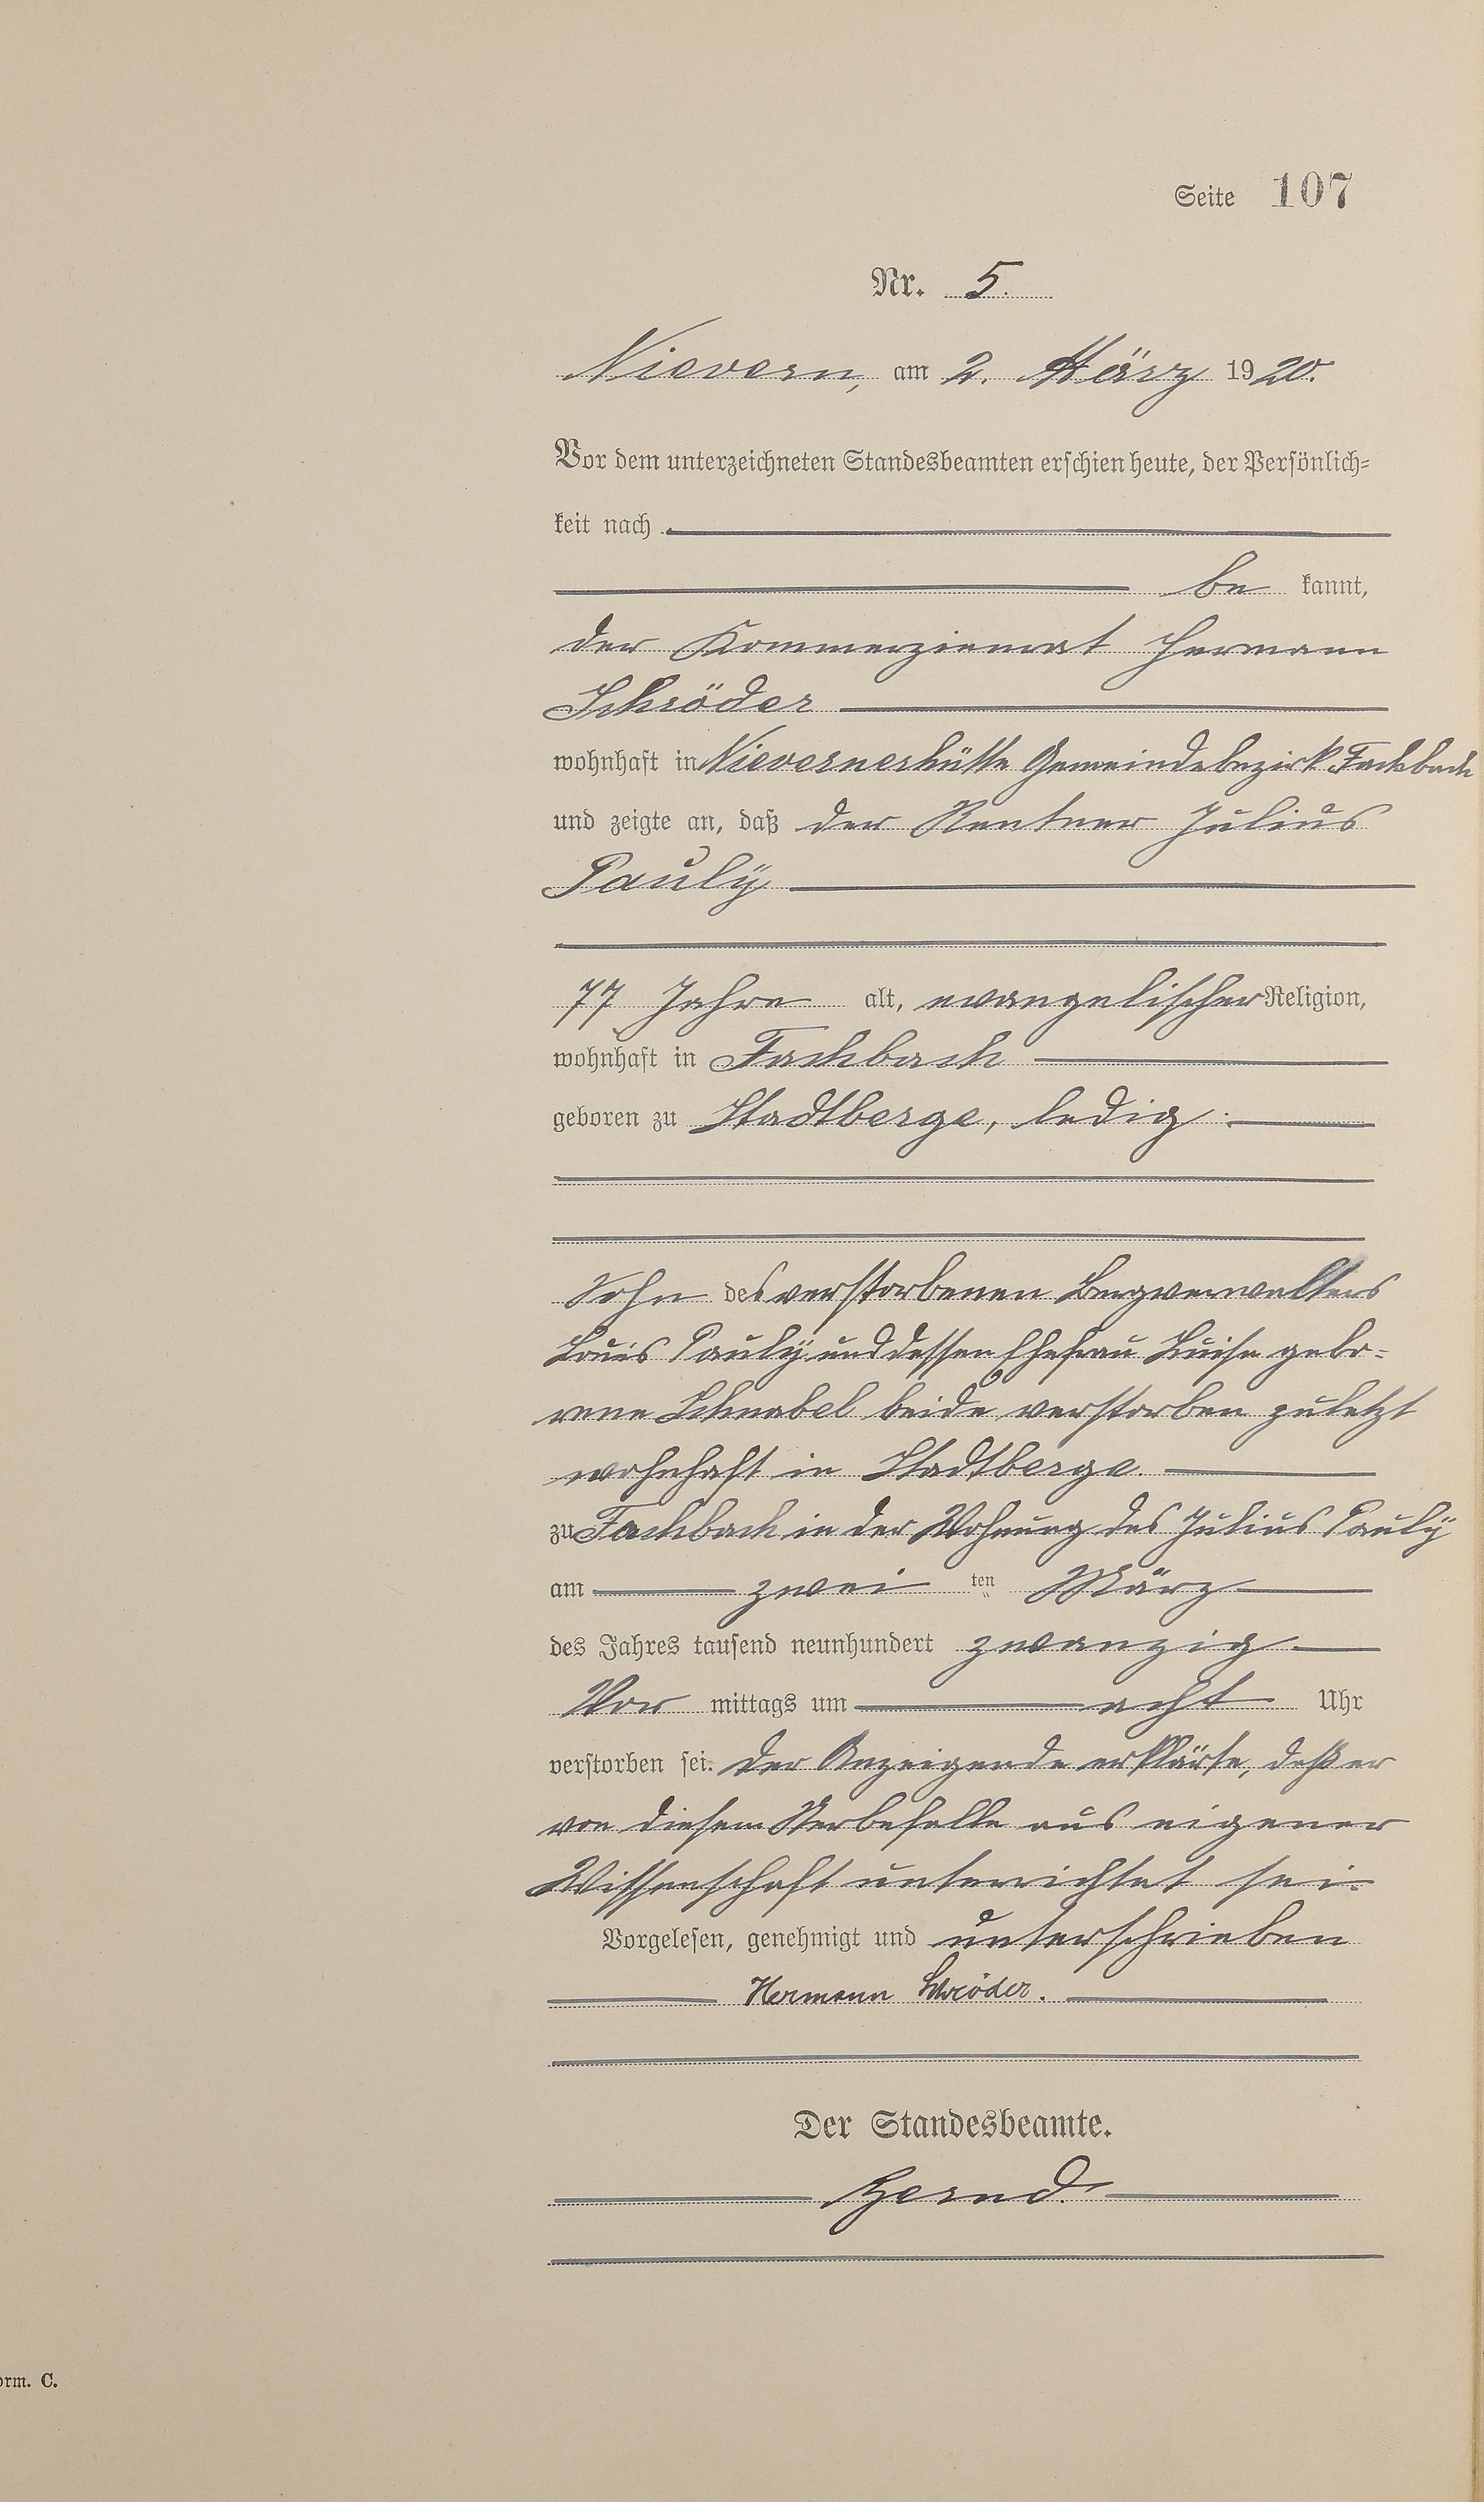 Seite 107
Nr. 5.
Nievern, am 2. März 1920.
Vor dem unterzeichneten Standesbeamten erschien heute, der Persönlich-
keit nach
be kannt,
der Kommerzienrat Hermann
Schröder
wohnhaft in Nievernerhütte Gemeindebezirk Fachbach
und zeigte an, daß der Rentner Julius
Pauly
77 Jahre alt, evangelischer Religion,
wohnhaft in Fachbach
geboren zu Stadtberge, ledig.
Sohn des verstorbenen Bergverwalters
Louis Pauly und dessen Ehefrau Luise gebo-
rene Schnabel beide verstorben zuletzt
wohnhaft in Stadtberge.
zu Fachbach in der Wohnung des Julius Pauly
am zwei ten März
des Jahres tausend neunhundert zwanzig
Vor mittags um acht Uhr
verstorben sei. Der Anzeigende erklärte, daß er
von diesem Sterbefalle aus eigener
Wissenschaft unterrichtet sei.
Vorgelesen, genehmigt und unterschrieben
Hermann Schröder.
Der Standesbeamte.
orm. C.